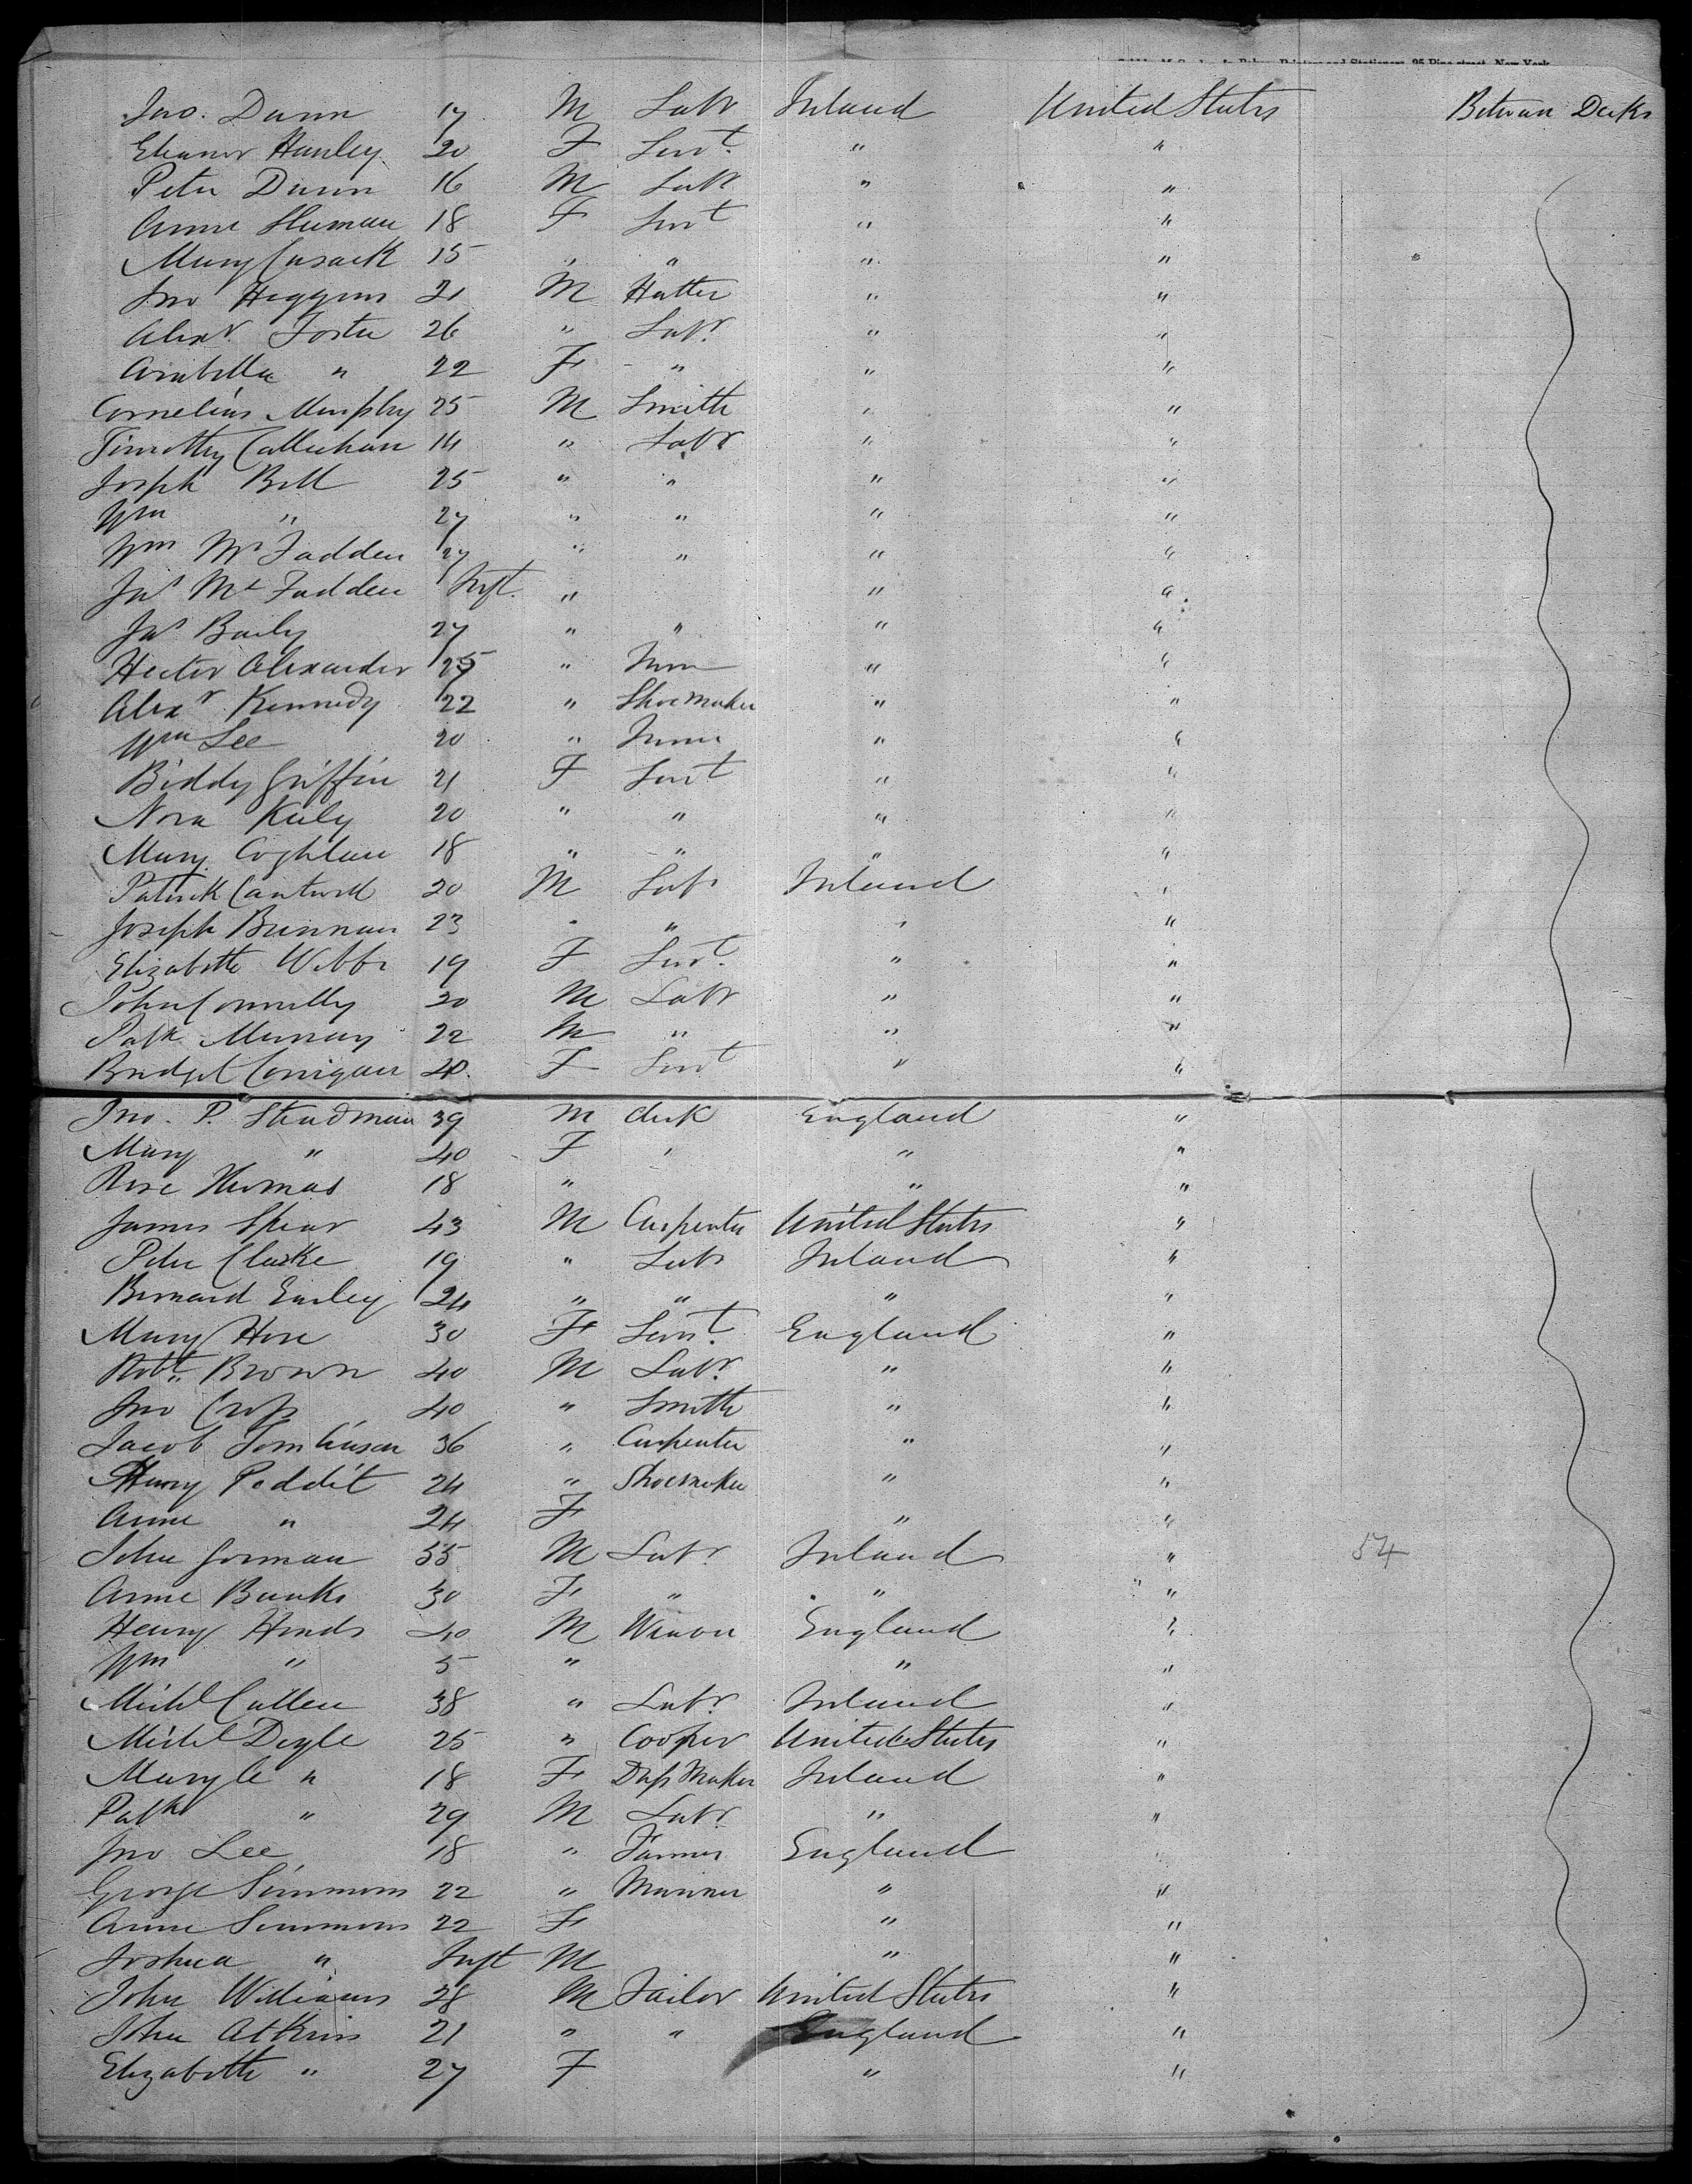 95 Pine street, New York
Jno. Dunn 17 M Labr Ireland United States Between Decks
Eleanor Hanley 20 F Servt. " "
Peter Dunn 16 M Labr " "
Anne 18 F Servt " "
Mary Cusack 15 " " " "
Jno Higgins 21 M Hatter " "
Alexr. Foster 26 " Labr. " "
Arabella " 22 F " " "
Cornelius Murphy 25 M Smith " "
Timothy Callaghan 14 " Labr " "
Joseph Bell 25 " " " "
Wm " 27 " " " "
Wm McFadden 27 " " " "
Jas McFadden Inft. " " "
Jas Baily 27 " " " "
Hector Alexander 25 " " "
Alexr Kennedy 22 " Shoemaker " "
Wm Lee 20 " " "
Biddy Griffin 21 F Servt " "
Nora Kiely 20 " " " "
Mary Coghlan 18 " " " "
Patrick Cantwell 20 M Labr Ireland "
Joseph Brennan 23 " " " "
Elizabeth Webb 19 F Servt. " "
John Connelly 20 M Labr " "
Patk Murray 22 M " " "
Bridget Corrigan 20. F Servt " "
Jno. P. Steadman 39 M Clerk England "
Mary " 40 F " " "
Rose Thomas 18 " " "
James Spear 43 M Carpenter United States "
Peter Clarke 19 " Labr Ireland "
Bernard Earley 24 " " " "
Mary Hore 30 F Servt. England "
Robt. Brown 40 M Labr. " "
Jno Cross 40 " Smith " "
Jacob Tomlinson 36 " Carpenter " "
Henry Poddit 24 " Shoemaker " "
Anne " 24 F " "
John Gorman 35 M Labr Ireland " 54
Anne Banks 30 F " " "
Henry Hinds 40 M Weaver England "
Wm " 5 " " "
Michl Cullen 38 " Labr. Ireland "
Michl Doyle 25 " Cooper United States "
Mary " 18 F Dress Maker Ireland "
Patk " 29 M Labr. " "
Jno Lee 18 " Farmer England "
George Simmons 22 " Mariner " "
Anne Simmons 22 F " "
Joshua " Inft M " "
John Williams 28 M Tailor United States "
John Atkins 21 " " England "
Elizabeth " 27 F " "